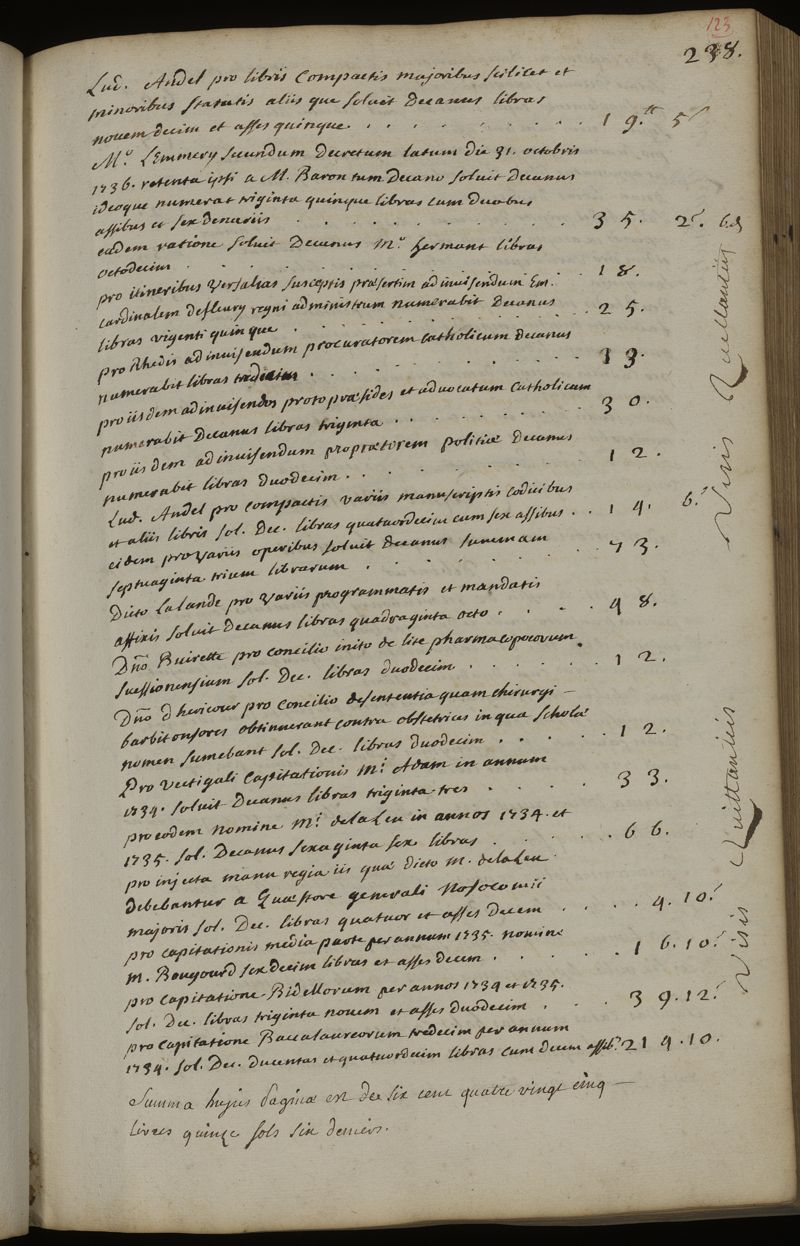 123
238.
Lud. Andel pro libris compactis majoribus scilicet et
minoribus statutis aliis que soluit Decanus libras
novem decim et asses quinque. . . . . . . . . . 1 9.tt 5s
M.o L'Emmery secundum Decretum latum die 31. octobris
1736. retenta ipsi a M. Baron tum Decano soluit Decanus
ideoque numerat triginta quinque libras cum duobus
assibus et sex denariis . . . . . . . . . . 3 5. 2s. 6d
eadem ratione soluit Decanus M.o hermant libras
octodecim . . . . . . . . . . . 1 8.
pro itineribus versalias susceptis præsertim ad invisendum Em.
cardinalem defleury regni administrum numerabit Decanus
libras viginti quinque . . . . . . . . . 2 5.
pro Rhedis ad invisendum procuratorem catholicum decanus
numerabit libras tredecim . . . . . . . . . 1 3.
pro iisdem ad invisendos protopræsides et advocatum catholicum
numerabit Decanus libras triginta . . . . . . . 3 0.
pro iisdem ad invisendum proprætorem politiæ Decanus
numerabit libras duodecim . . . . . . . . 1 2.
Lud. Andel pro compactis variis manuscriptis codicibus
et aliis libris sol. Dec. libras quatuordecim cum sex assibus . . 1 4. 6s
eidem pro variis operibus soluit decanus summam
septuaginta trium librarum . . . . . . . 7 3.
Dicto Lalande pro variis programmatis et mandatis
affixis soluit Decanus libras quadraginta octo . . . . 4 8.
Dño Buirette pro concilio inito de lite pharmacopoeorum
suessionensium sol. Dec. libras duodecim . . . . . . 1 2.
Dño d'hericour pro concilio de sententia quam chirurgi –
barbitonsores obtinuerant contra obstetrices in qua scholæ
nomen sumebant sol. Dec. libras duodecim . . . . . 1 2.
Pro vectigali capitationis M.i Adam in annum
1734. soluit Decanus libras triginta tres . . . . 3 3.
pro eodem nomine M.i de la Leu in annos 1734. et
1735. sol. Decanus sexaginta sex libras . . . . . 6 6.
pro injecta manu regia iis quæ dicto m. de la Leu
debebantur a Quæstore generali Nosocomii
majoris sol. Dec. libras quatuor et asses decem . . . . 4. 10.s
pro capitationis media parte per annum 1735. nomine
m. Bougourd sexdecim libras et asses decem . . . . . 1 6. 10.s
pro capitatione Bidellorum per annos 1734 et 1735.
sol. Dec. libras triginta novem et asses duodecim . . . 3 9. 12.s
pro capitatione Baccalaureorum tredecim per annum
1734. sol. Dec. Ducentas et quatuordecim libras cum decem assib.s 2 1 4. 10.
Summa hujus paginæ est de six cent quatre vingt cinq –
livres quinze sols six deniers.
Visis Quittanciis
Visis Quittanciis